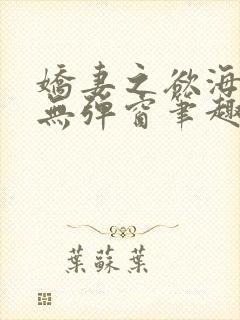 嬌妻之欲海
無彈窗筆趣
葉蘇葉